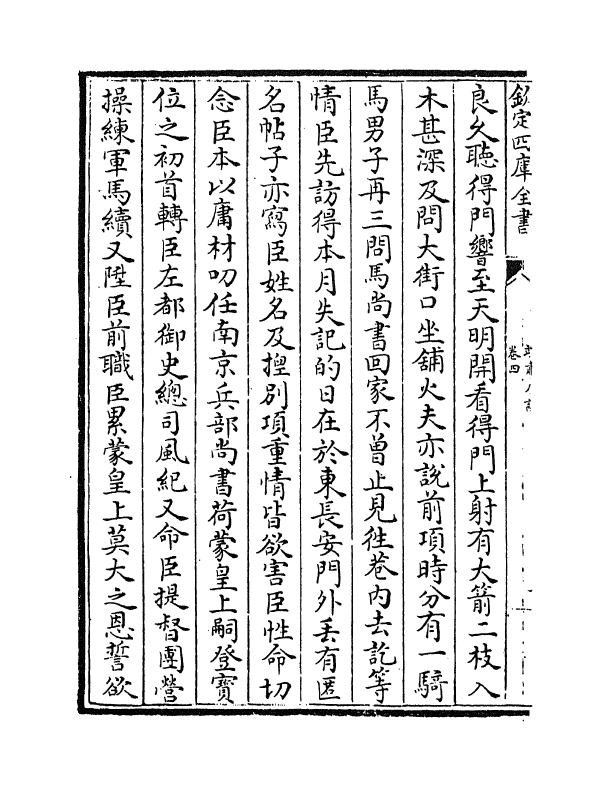 欽定四庫全書
卷四
良久聽得門響至天明開看得門上射有大箭二枝入
木甚深及問大街口坐舖火夫亦說前項時分有一騎
馬男子再三問馬尚書回家不曾止見徃巷内去訖等
情臣先訪得本月失記的日在於東長安門外丢有匿
名帖子亦寫臣姓名及揑别項重情皆欲害臣性命切
念臣本以庸材叨任南京兵部尚書荷蒙皇上嗣登寳
位之初首轉臣左都御史總司風紀又命臣提督團營
操練軍馬續又陞臣前職臣累蒙皇上莫大之恩誓欲